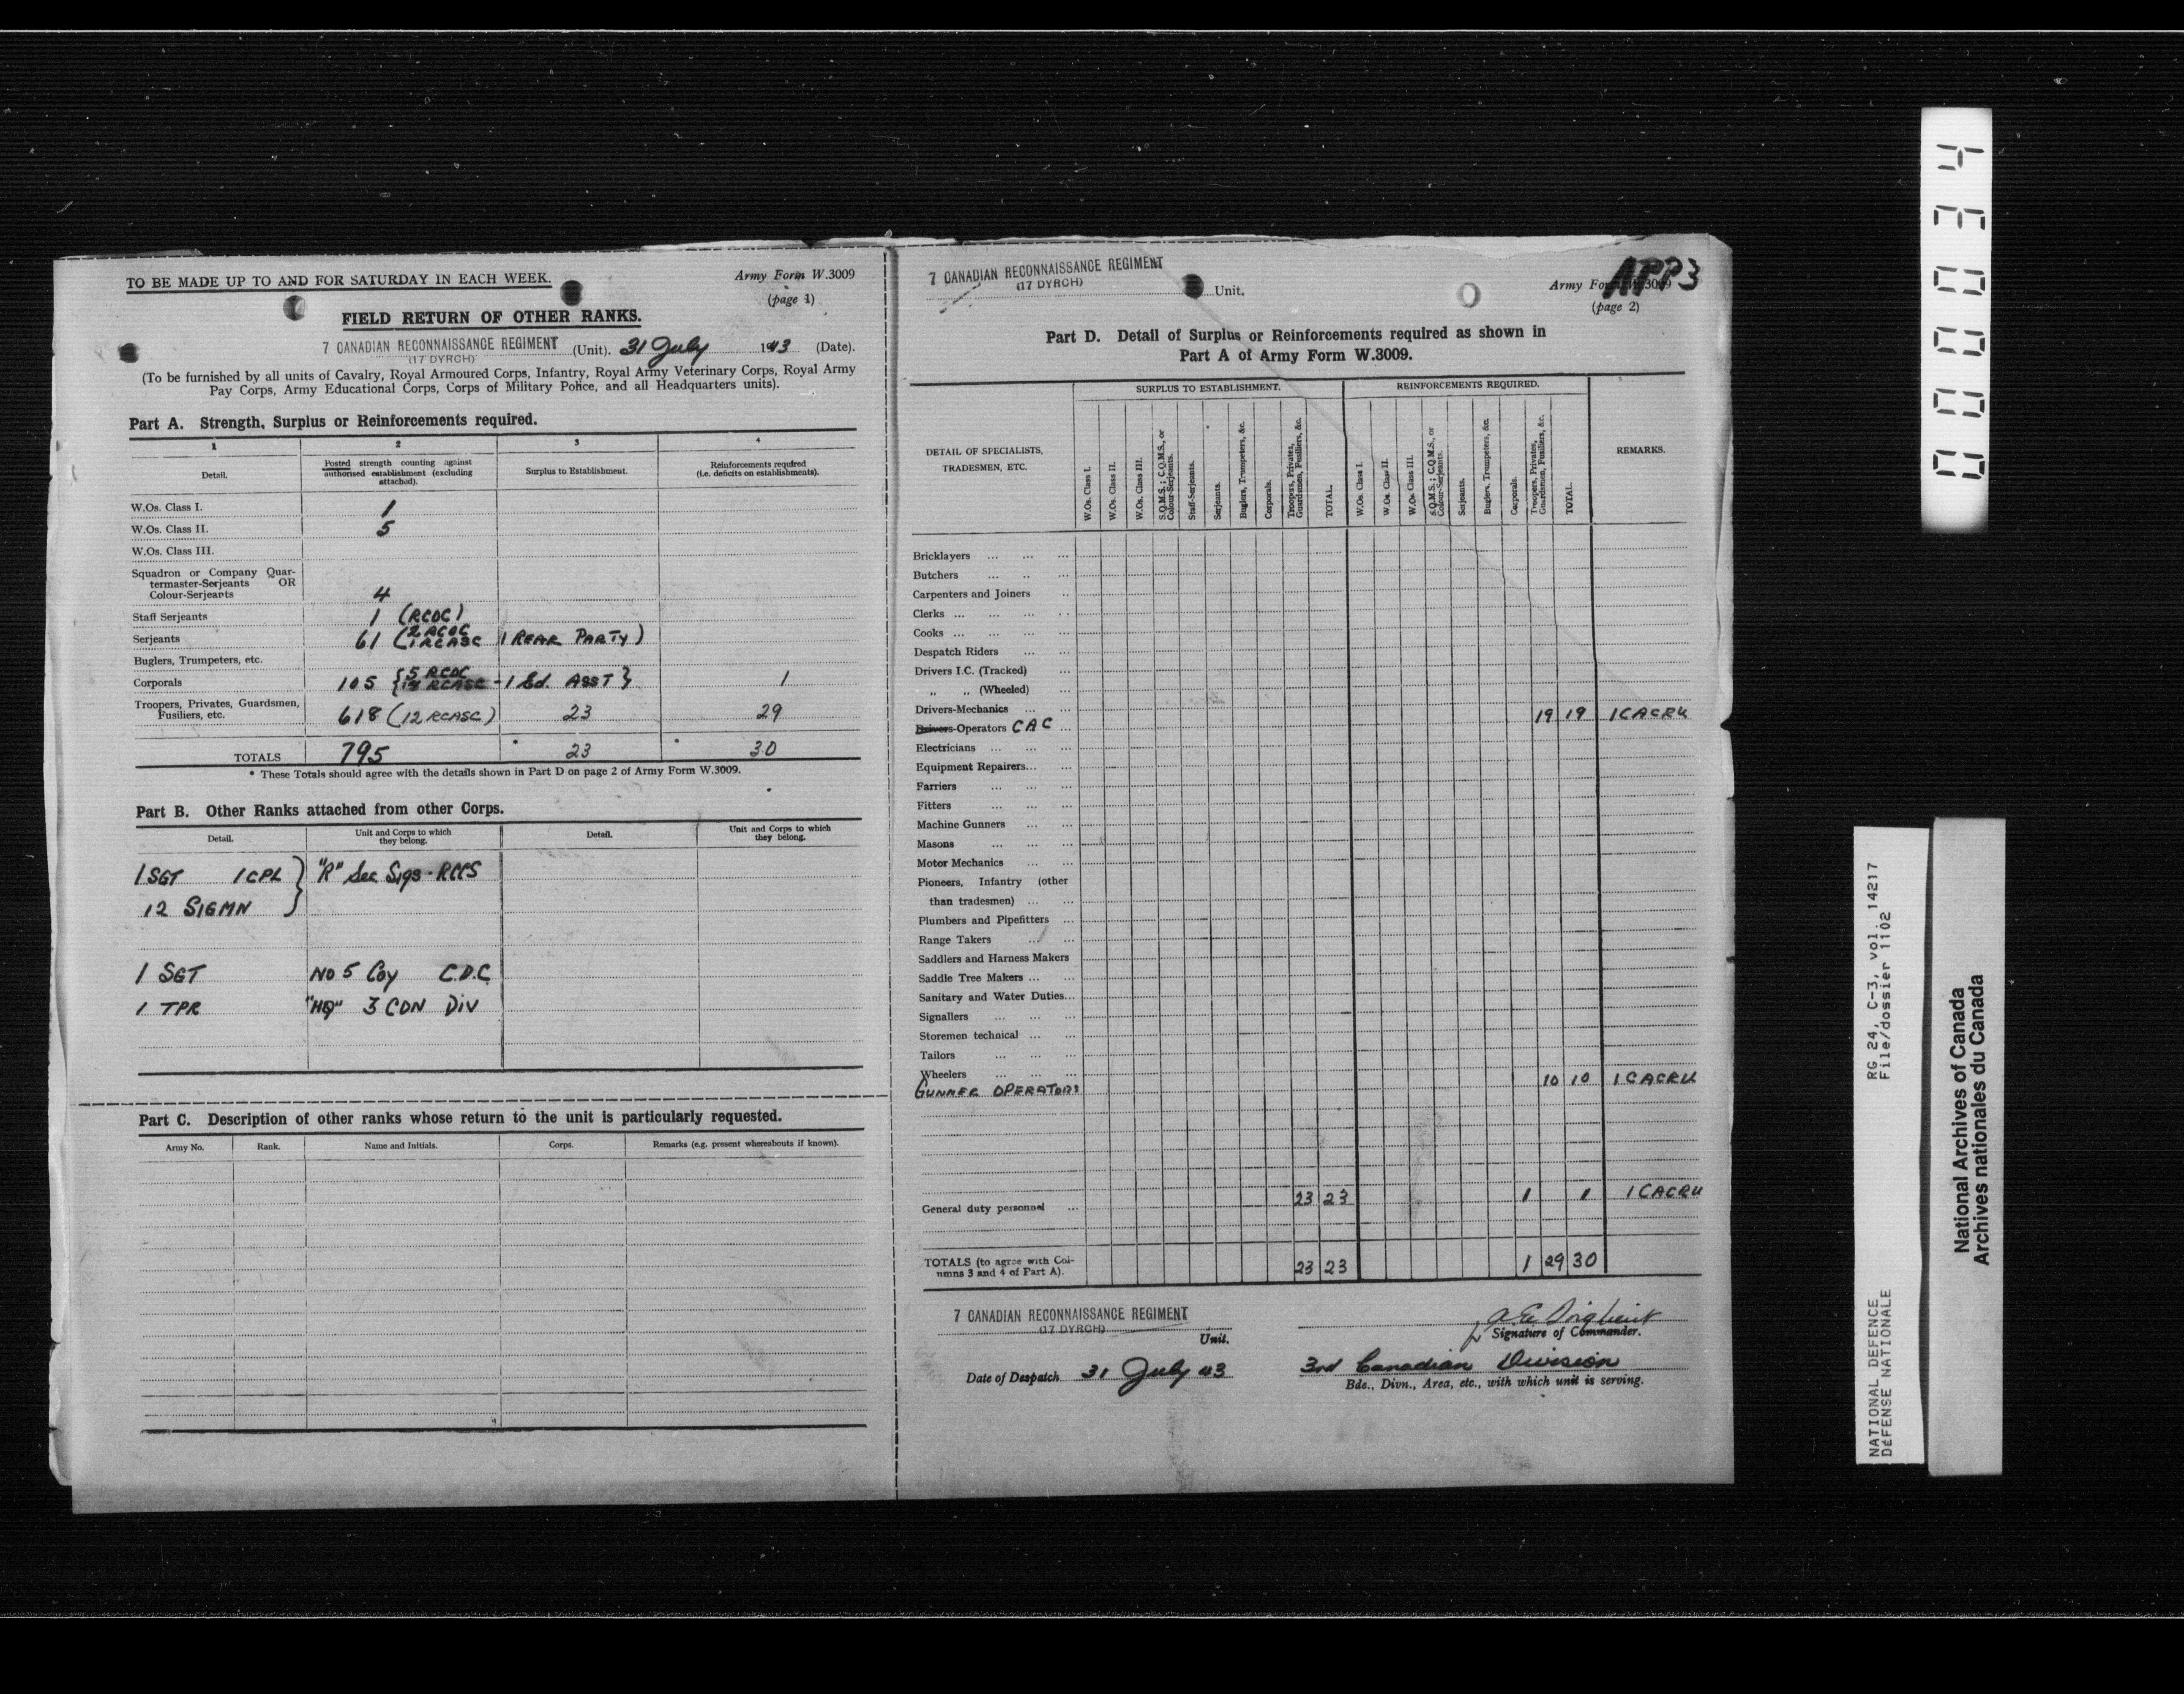 TO BE MADE UP TO AND FOR SATURDAY IN EACH WEEK.
Army Form W.3009
(page 1)
FIELD RETURN OF OTHER RANKS.
7 CANADIAN RECONNAISSANCE REGIMENT (Unit). 31 July 1943 (Date).
(17 DYRCH)
(To be furnished by all units of Cavalry, Royal Armoured Corps, Infantry, Royal Army Veterinary Corps, Royal Army
Pay Corps, Army Educational Corps, Corps of Military Police, and all Headquarters units).
Part A. Strength, Surplus or Reinforcements required.
1 2 3 4
Detail. Posted strength counting against authorised establishment (excluding attached). Surplus to Establishment. Reinforcements required (i.e. deficits on establishments).
W.Os. Class I. 1
W.Os. Class II. 5
W.Os. Class III.
Squadron or Company Quar-
termaster-Serjeants OR
Colour-Serjeants 4
Staff Serjeants 1 (RCOC)
Serjeants 61 (2 RCOC 1 RCASC 1 REAR PARTY)
Buglers, Trumpeters, etc.
Corporals 105 {5 RCOC RCASC - 1 Ed. ASST} 1
Troopers, Privates, Guardsmen,
Fusiliers, etc. 618 (12 RCASC) 23 29
TOTALS 795 * 23 * 30
* These Totals should agree with the details shown in Part D on page 2 of Army Form W.3009.
Part B. Other Ranks attached from other Corps.
Detail. Unit and Corps to which they belong. Detail. Unit and Corps to which they belong.
1 SGT 1 CPL } "R" Sec Sigs - RCCS
12 SIGMN
1 SGT NO 5 Coy C.D.C.
1 TPR "HQ" 3 CDN DIV
Part C. Description of other ranks whose return to the unit is particularly requested.
Army No. Rank. Name and Initials. Corps. Remarks (e.g. present whereabouts if known).
7 CANADIAN RECONNAISSANCE REGIMENT
(17 DYRCH) Unit.
APP 3
Army Form W.3009
(page 2)
Part D. Detail of Surplus or Reinforcements required as shown in
Part A of Army Form W.3009.
DETAIL OF SPECIALISTS,
TRADESMEN, ETC.
SURPLUS TO ESTABLISHMENT. REINFORCEMENTS REQUIRED. REMARKS.
W.Os. Class I.
W.Os. Class II.
W.Os. Class III.
S.Q.M.S.; C.Q.M.S., or Colour-Serjeants.
Staff-Serjeants.
Serjeants.
Buglers, Trumpeters, &c.
Corporals.
Troopers, Privates, Guardsmen, Fusiliers, &c.
TOTAL.
W.Os. Class I.
W.Os. Class II.
W.Os. Class III.
S.Q.M.S.; C.Q.M.S., or Colour-Serjeants.
Serjeants.
Buglers, Trumpeters, &c.
Corporals.
Troopers, Privates, Guardsmen, Fusiliers, &c.
TOTAL.
Bricklayers ... ... ...
Butchers ... .. ...
Carpenters and Joiners ..
Clerks ... ... ... ..
Cooks ... ... ... ...
Despatch Riders ... ...
Drivers I.C. (Tracked) ...
„ „ (Wheeled) ...
Drivers-Mechanics ... ...
Drivers-Operators CAC ... 19 19 1 CACRU
Electricians ... ... ...
Equipment Repairers... ...
Farriers ... ... ...
Fitters ... ... ...
Machine Gunners ... ...
Masons ... ... ...
Motor Mechanics ... ...
Pioneers, Infantry (other
than tradesmen) ... ...
Plumbers and Pipefitters ...
Range Takers ... ...
Saddlers and Harness Makers
Saddle Tree Makers ... ...
Sanitary and Water Duties...
Signallers ... ... ...
Storemen technical ... ...
Tailors ... ... ...
Wheelers ... ... ...
GUNNER OPERATORS 10 10 1 CACRU
General duty personnel ... 23 23 1 1 1 CACRU
TOTALS (to agree with Col-
umns 3 and 4 of Part A). 23 23 1 29 30
7 CANADIAN RECONNAISSANCE REGIMENT
(17 DYRCH)
Unit.
Signature of Commander.
Date of Despatch 31 July 43
3rd Canadian Division
Bde., Divn., Area, etc., with which unit is serving.
000034
RG 24, C-3, vol. 14217
File/dossier 1102
NATIONAL DEFENCE
DÉFENSE NATIONALE
National Archives of Canada
Archives nationales du Canada